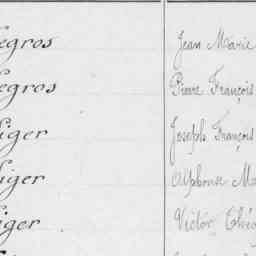 egros Jean Marie
egros Pierre François
iger Joseph François
iger Alphonse Ma
iger Victor Théo